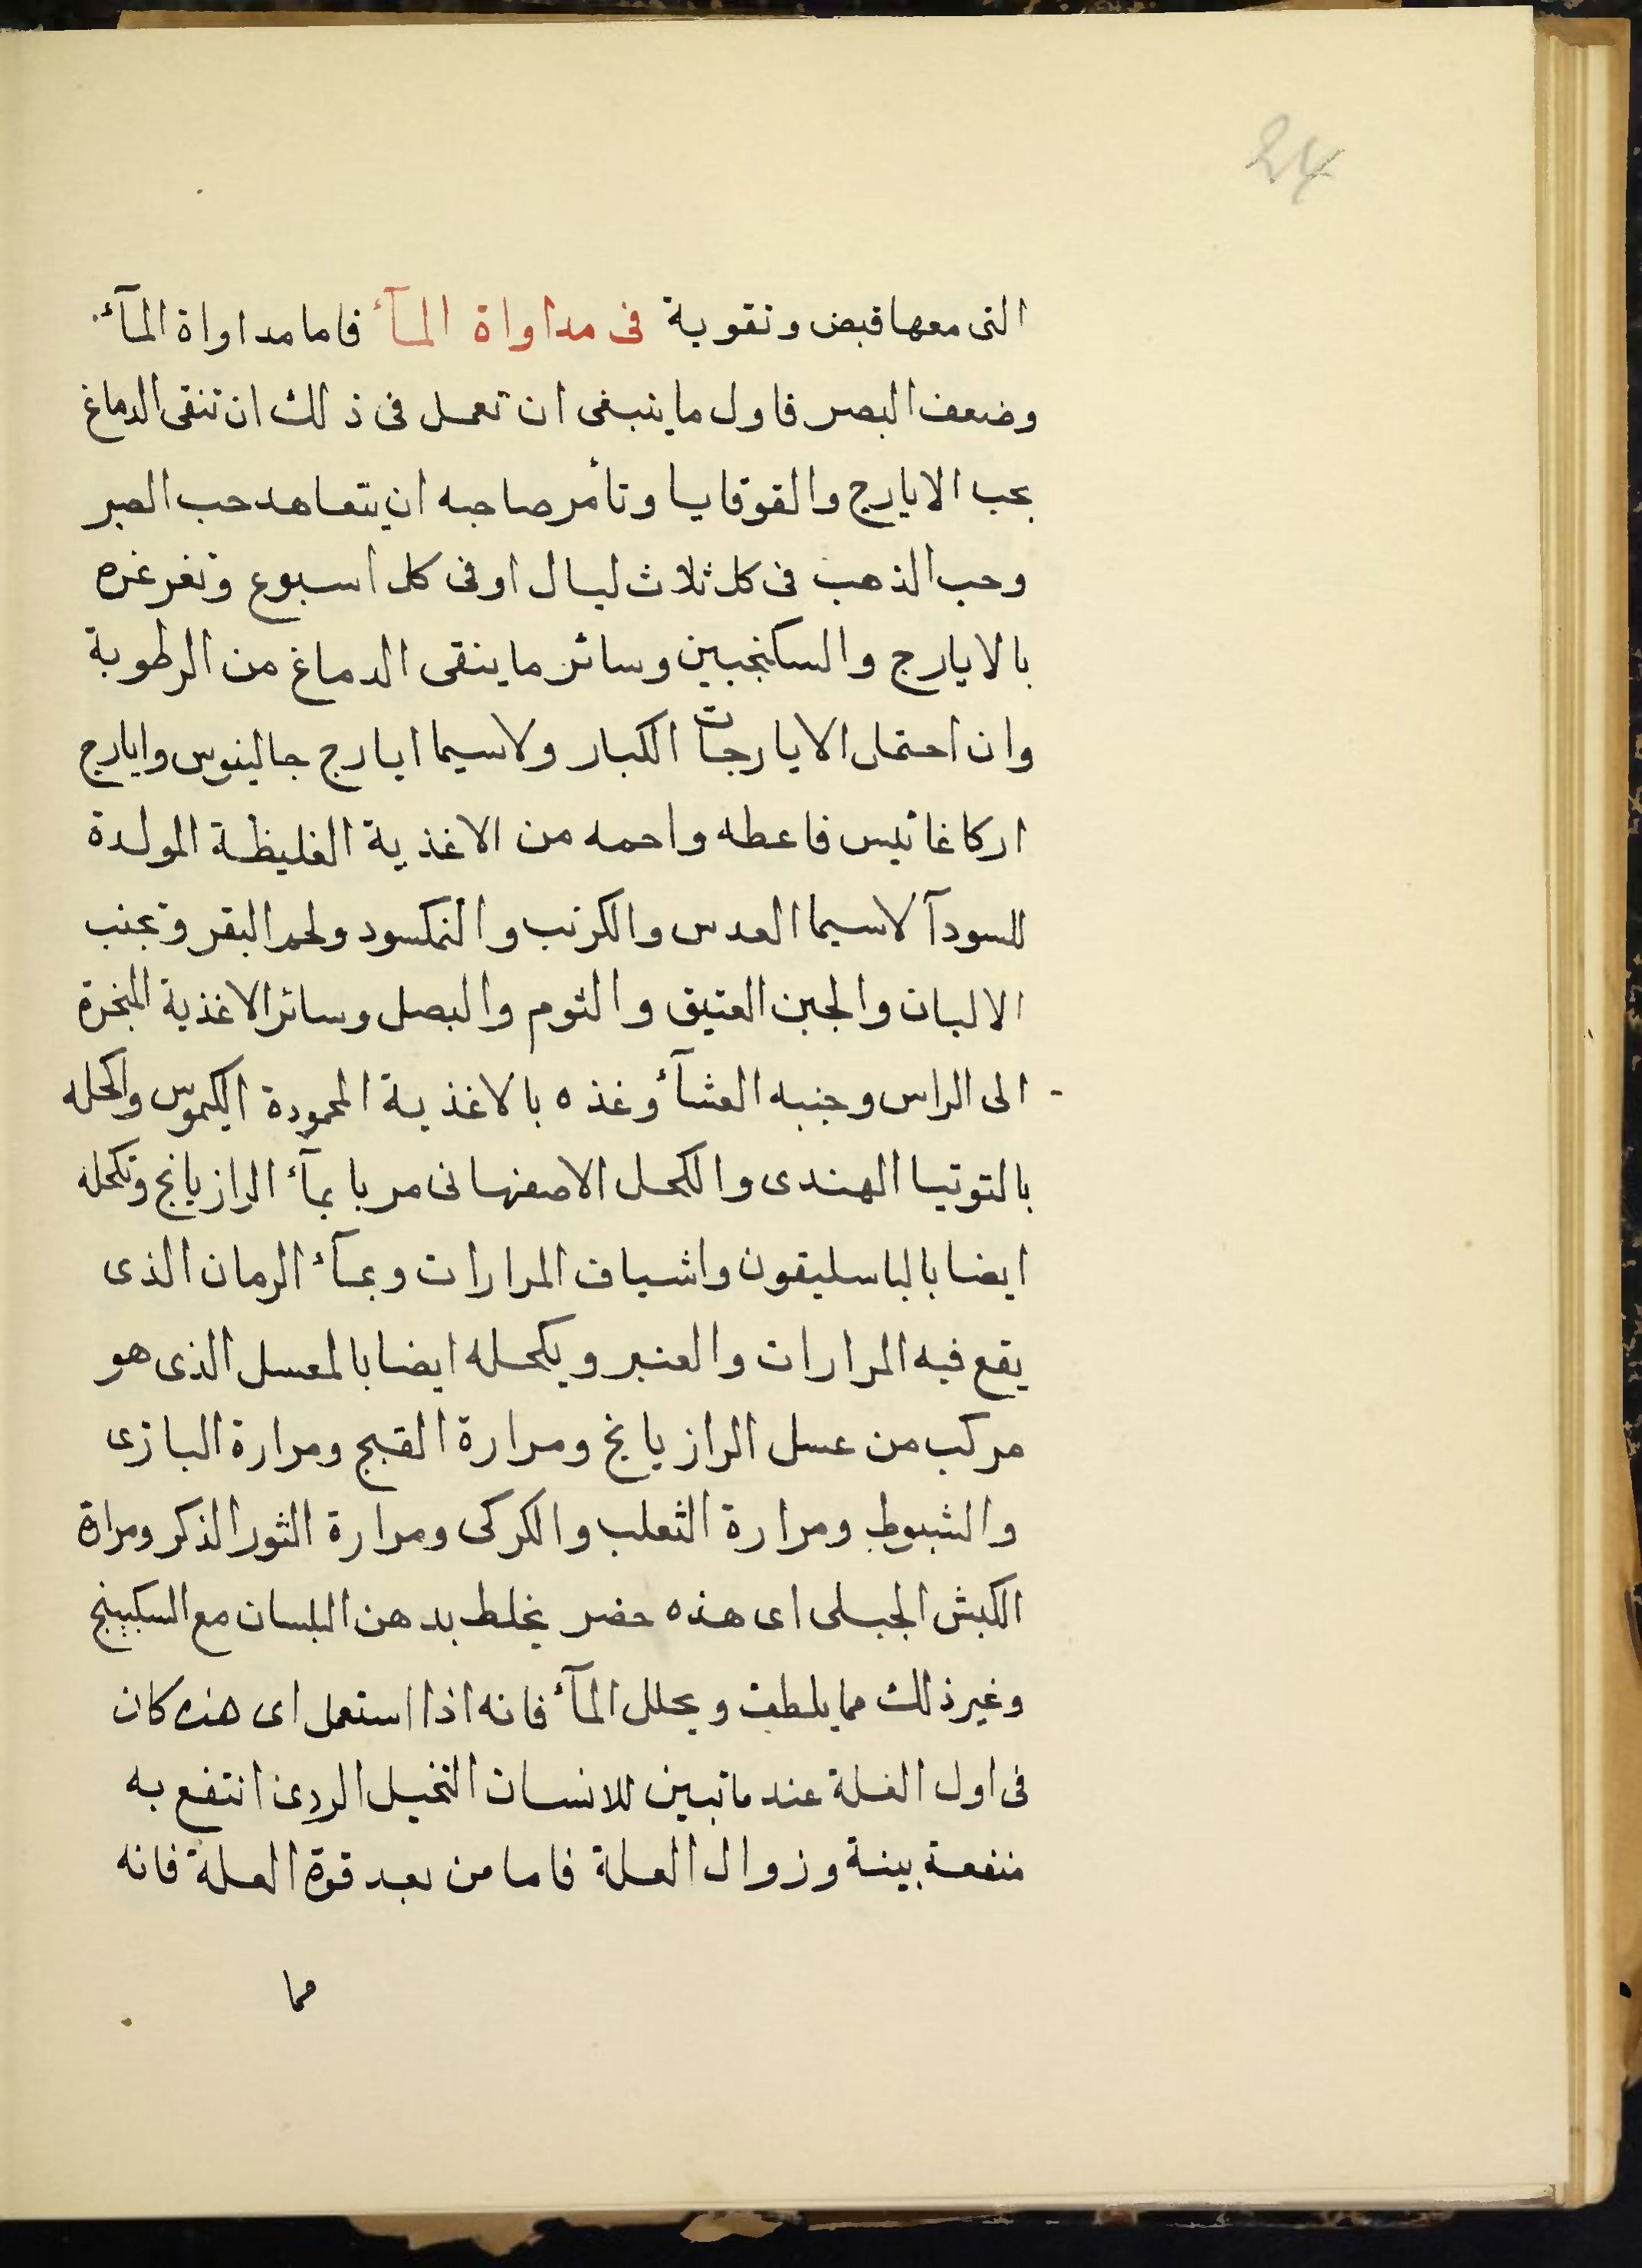 24
التى معها قبض وتقوية فى مداواة المآء فاما مداواة المآء
وضعف البصر فاول ما ينبغى ان تعمل فى ذلك ان تنقى الدماغ
بحب الايارج والقوقايا وتأمر صاحبه ان يتعاهد حب الصبر
وحب الذهب فى كل ثلاث ليال او فى كل اسبوع وتغرغره
بالايارج والسكنجبين وسائر ما ينقى الدماغ من الرطوبة
وان احتمل الايارجات الكبار ولاسيما ايارج جالينوس وايارج
اركاغانيس فاعطه واحمه من الاغذية الغليظة المولدة
للسودآ لاسيما العدس والكرنب والنمكسود ولحم البقر وتجنب
الالبان والجبن العتيق والثوم والبصل وسائر الاغذية المبخرة
الى الراس وجنبه العشآء وغذه بالاغذية المحمودة الكيموس واكحله
بالتوتيا الهندى والكحل الاصفهانى مربا بمآء الرازيانج وتكحله
ايضا بالباسليقون واشياف المرارات وبمآء الرمان الذى
يقع فيه المرارات والعنبر ويكحله ايضا بالمعسل الذى هو
مركب من عسل الرازيانج ومرارة القبج ومرارة البازى
والشبوط ومرارة الثعلب والكركى ومرارة الثور الذكر ومرارة
الكبش الجبلى اى هذه حضر يخلط بدهن البلسان مع السكبينج
وغير ذلك مما يلطف ويحلل المآء فانه اذا استعمل اى هذه كان
فى اول الغلة عند ما تبين للانسان التخيل الردى انتفع به
منفعة بينة وزوال العلة فاما من بعد قوة العلة فانه
مما